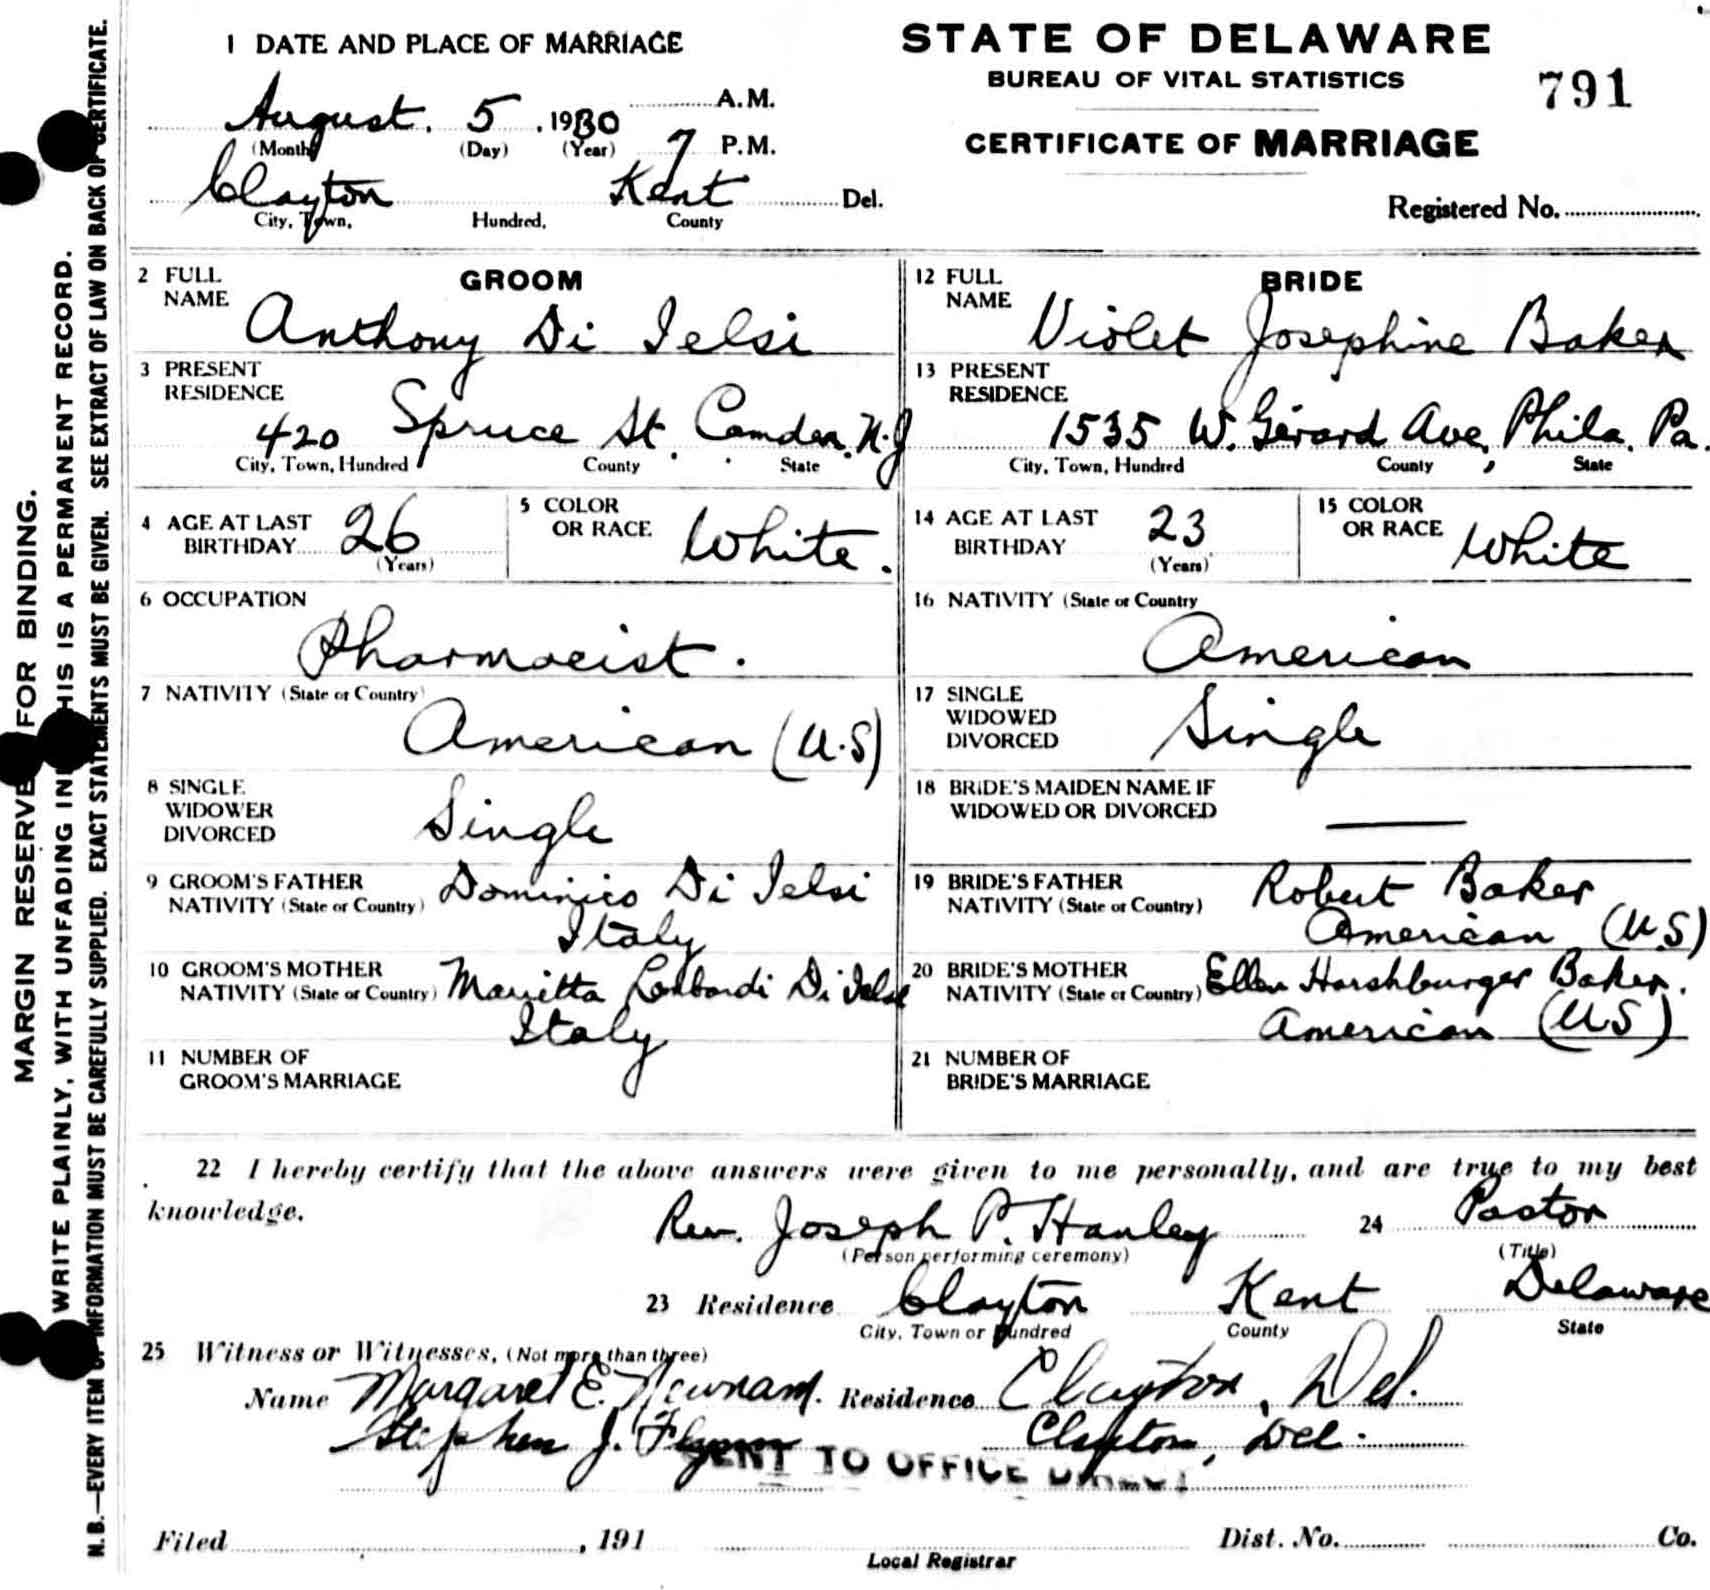 1 DATE AND PLACE OF MARRIAGE
August. 5, 1930 A.M.
(Month) (Day) (Year) 7 P.M.
Clayton Kent Del.
City, Town, Hundred, County
STATE OF DELAWARE
BUREAU OF VITAL STATISTICS
791
CERTIFICATE OF MARRIAGE
Registered No.
MARGIN RESERVED FOR BINDING.
WRITE PLAINLY, WITH UNFADING INK THIS IS A PERMANENT RECORD.
N.B.—EVERY ITEM OF INFORMATION MUST BE CAREFULLY SUPPLIED. EXACT STATEMENTS MUST BE GIVEN. SEE EXTRACT OF LAW ON BACK OF CERTIFICATE.
GROOM
2 FULL NAME Anthony Di Ielsi
3 PRESENT RESIDENCE
420 Spruce St. Camden. N.J
City, Town, Hundred County State
4 AGE AT LAST BIRTHDAY 26 (Years)
5 COLOR OR RACE White.
6 OCCUPATION
Pharmacist.
7 NATIVITY (State or Country)
American (U.S)
8 SINGLE
WIDOWER
DIVORCED
Single
9 GROOM'S FATHER Dominico Di Ielsi
NATIVITY (State or Country) Italy
10 GROOM'S MOTHER Marietta Lombardi Di Ielsi
NATIVITY (State or Country) Italy
11 NUMBER OF
GROOM'S MARRIAGE
BRIDE
12 FULL NAME Violet Josephine Baker
13 PRESENT RESIDENCE
1535 W. Girard Ave, Phila. Pa.
City, Town, Hundred County State
14 AGE AT LAST BIRTHDAY 23 (Years)
15 COLOR OR RACE White
16 NATIVITY (State or Country
American
17 SINGLE
WIDOWED
DIVORCED
Single
18 BRIDE'S MAIDEN NAME IF
WIDOWED OR DIVORCED
19 BRIDE'S FATHER Robert Baker
NATIVITY (State or Country) American (U.S)
20 BRIDE'S MOTHER Ellen Harshburger Baker.
NATIVITY (State or Country) American (U.S)
21 NUMBER OF
BRIDE'S MARRIAGE
22 I hereby certify that the above answers were given to me personally, and are true to my best
knowledge.
Rev. Joseph P. Hanley 24 Pastor
(Person performing ceremony) (Title)
23 Residence Clayton Kent Delaware
City, Town or Hundred County State
25 Witness or Witnesses, (Not more than three)
Name Margaret E. Newnam. Residence Clayton, Del.
Stephen J. Flynn Clayton, Del.
SENT TO OFFICE DIRECT
Filed , 191 Dist. No. Co.
Local Registrar